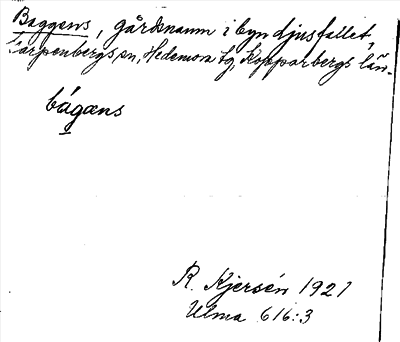 Baggens, gårdsnamn i byn djusfallet,
Garpenbergs sn, Hedemora tg, Kopparbergs län.
bágæns
R. Kjersén 1921
Ulma 616:3